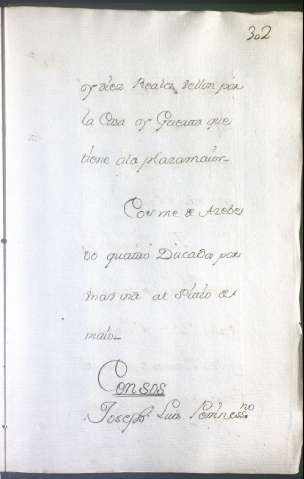 302
y diez Reales Vellon por
la Casa y Guerta que
tiene ala plazamaior
Cosme de Azebe
do quatro Ducados por
mas una al Sittio de
maio
Consos
Joseph Luis